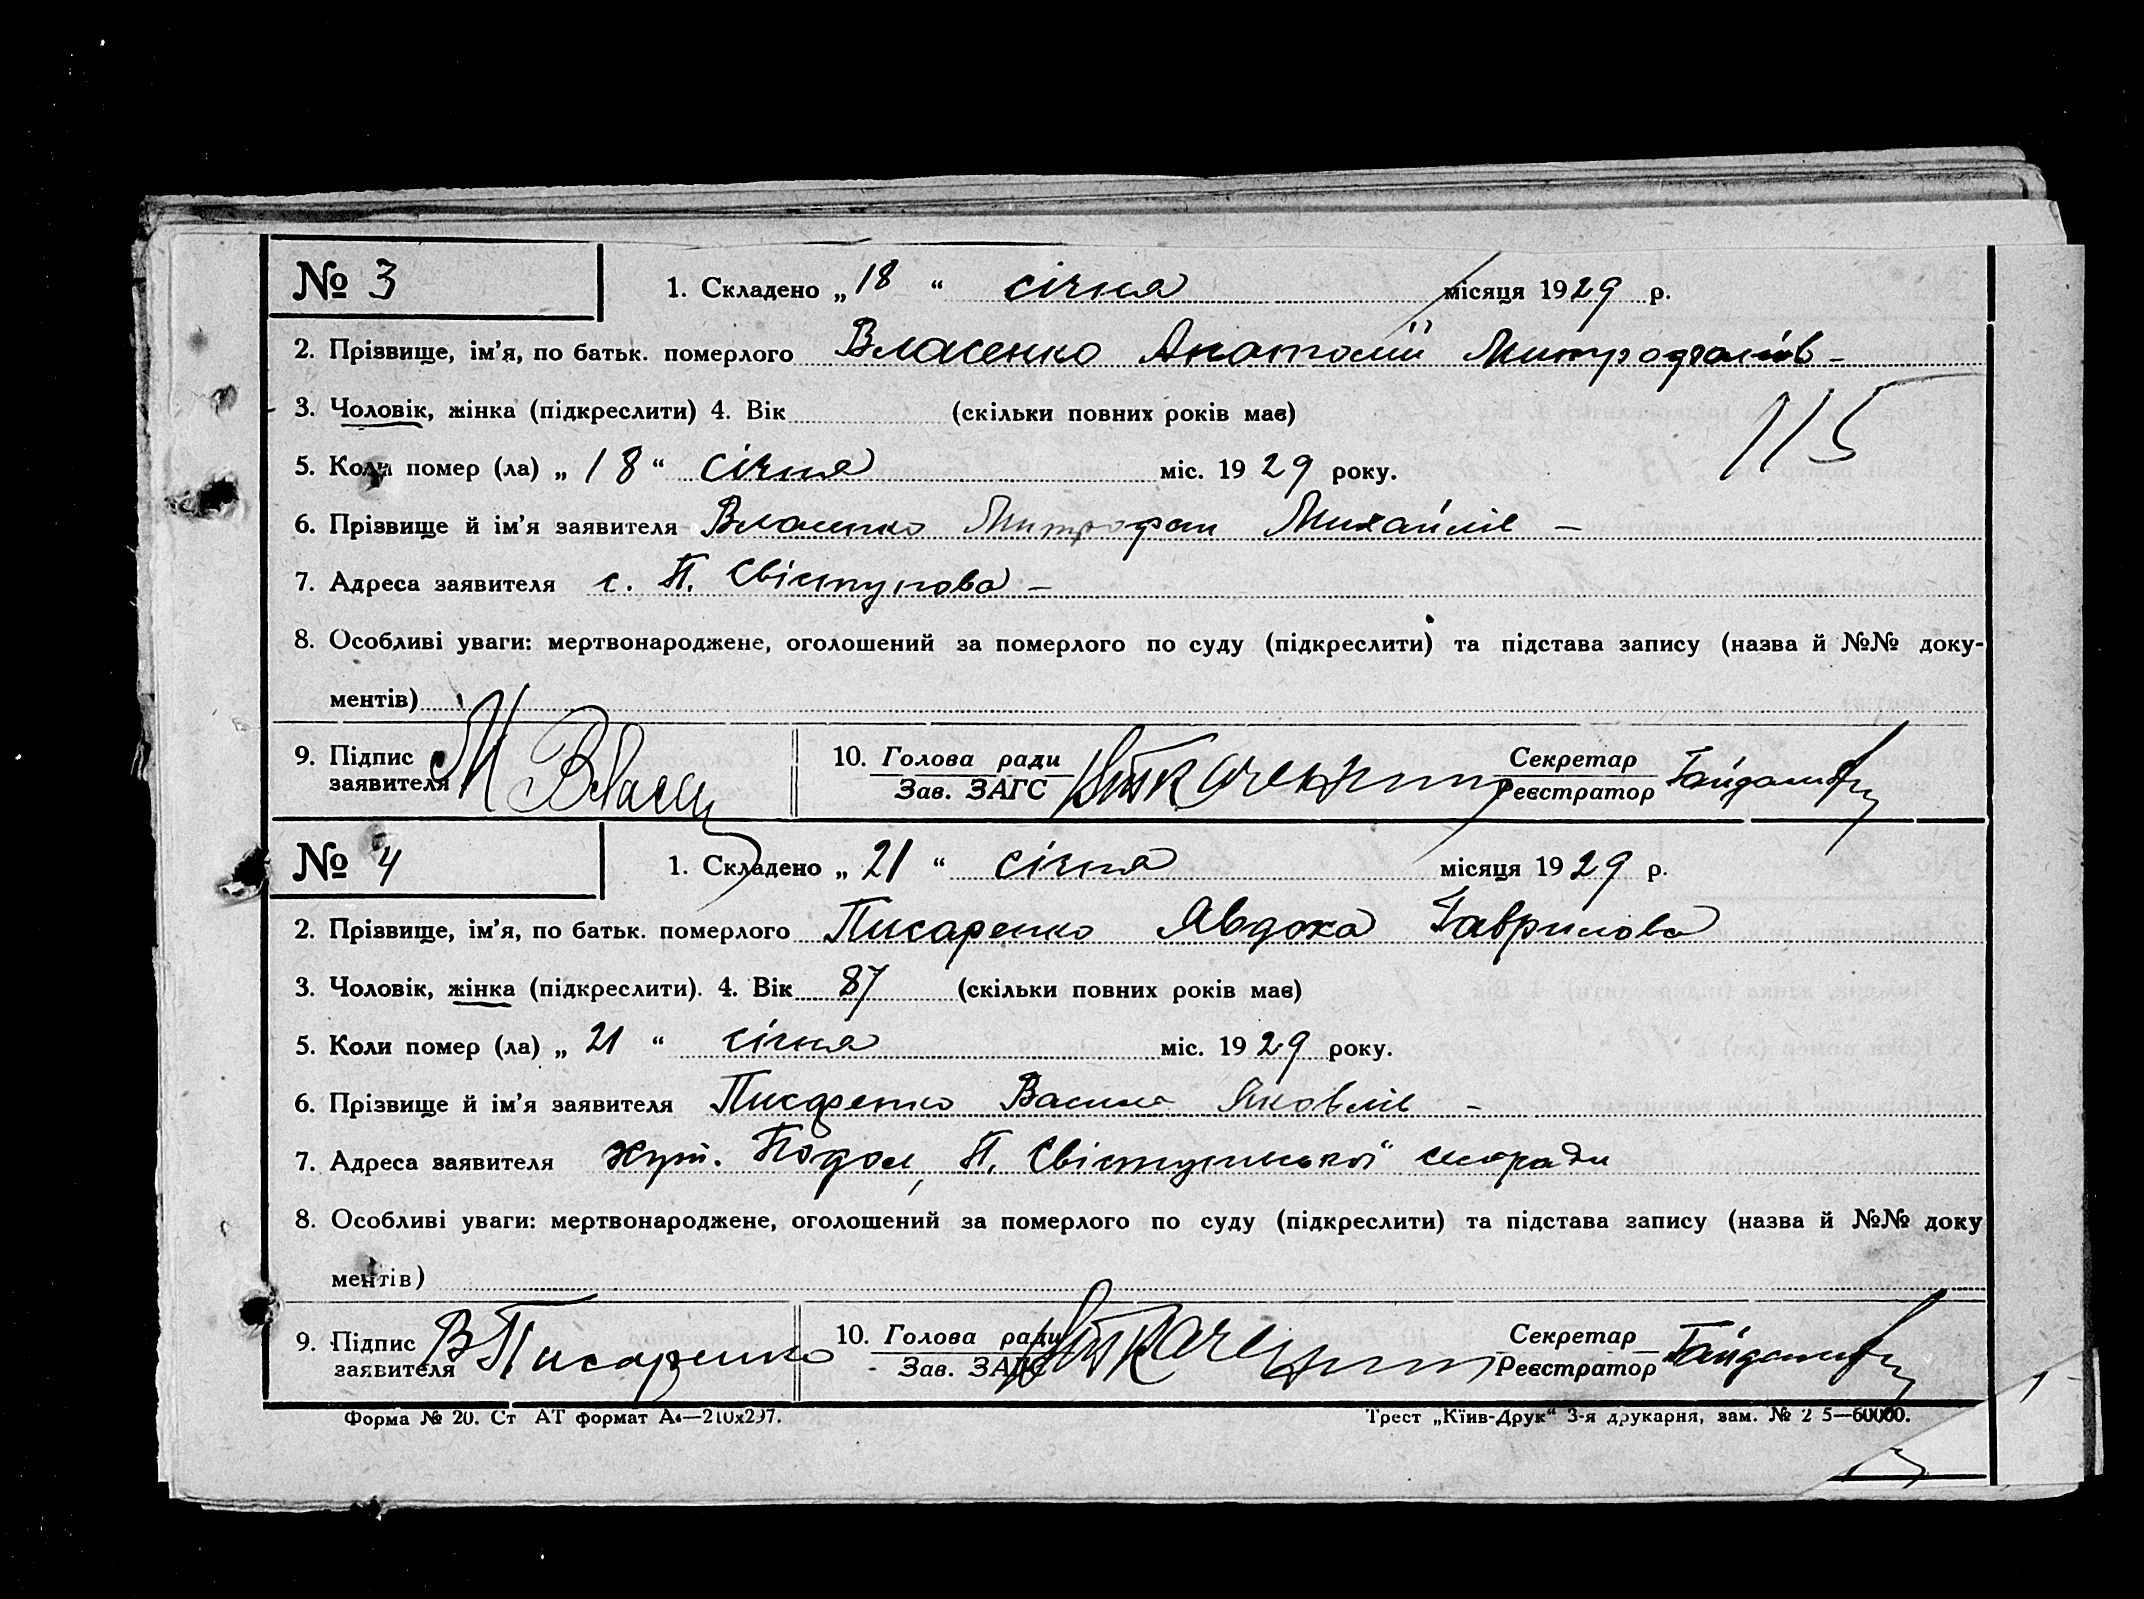 № 3 1. Складено „ 18 “ січня місяця 1929 р.
2. Прізвище, ім’я, по батьк. померлого Власенко Анатолій Митрофанів –
3. Чоловік, жінка (підкреслити) 4. Вік (скільки повних років має)
115
5. Коли помер (ла) „ 18 “ січня міс. 1929 року.
6. Прізвище й ім’я заявителя Власенко Митрофан Михайлів –
7. Адреса заявителя с. П. Свістунова –
8. Особливі уваги: мертвонароджене, оголошений за померлого по суду (підкреслити) та підстава запису (назва й №№ доку-
ментів)
9. Підпис заявителя М Власен 10. Голова ради Зав. ЗАГС Секретар Реєстратор
№ 4 1. Складено „ 21 “ січня місяця 1929 р.
2. Прізвище, ім’я, по батьк. померлого Писаренко Явдоха Гаврилова
3. Чоловік, жінка (підкреслити). 4. Вік 87 (скільки повних років має)
5. Коли помер (ла) „ 21 “ січня міс. 1929 року.
6. Прізвище й ім’я заявителя Писаренко Василь Яковлів –
7. Адреса заявителя хут. Подол, П. Свістунської сілради
8. Особливі уваги: мертвонароджене, оголошений за померлого по суду (підкреслити) та підстава запису (назва й №№ доку
ментів)
9. Підпис заявителя В Писаренко 10. Голова ради Зав. ЗАГС Секретар Реєстратор
Форма № 20. Ст АТ формат А4—210х297. Трест „Київ-Друк“ 3-я друкарня, зам. № 2 5—60000.